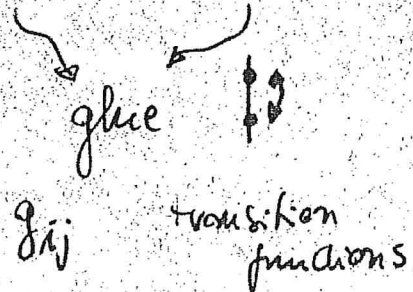 glue
gij transition
functions